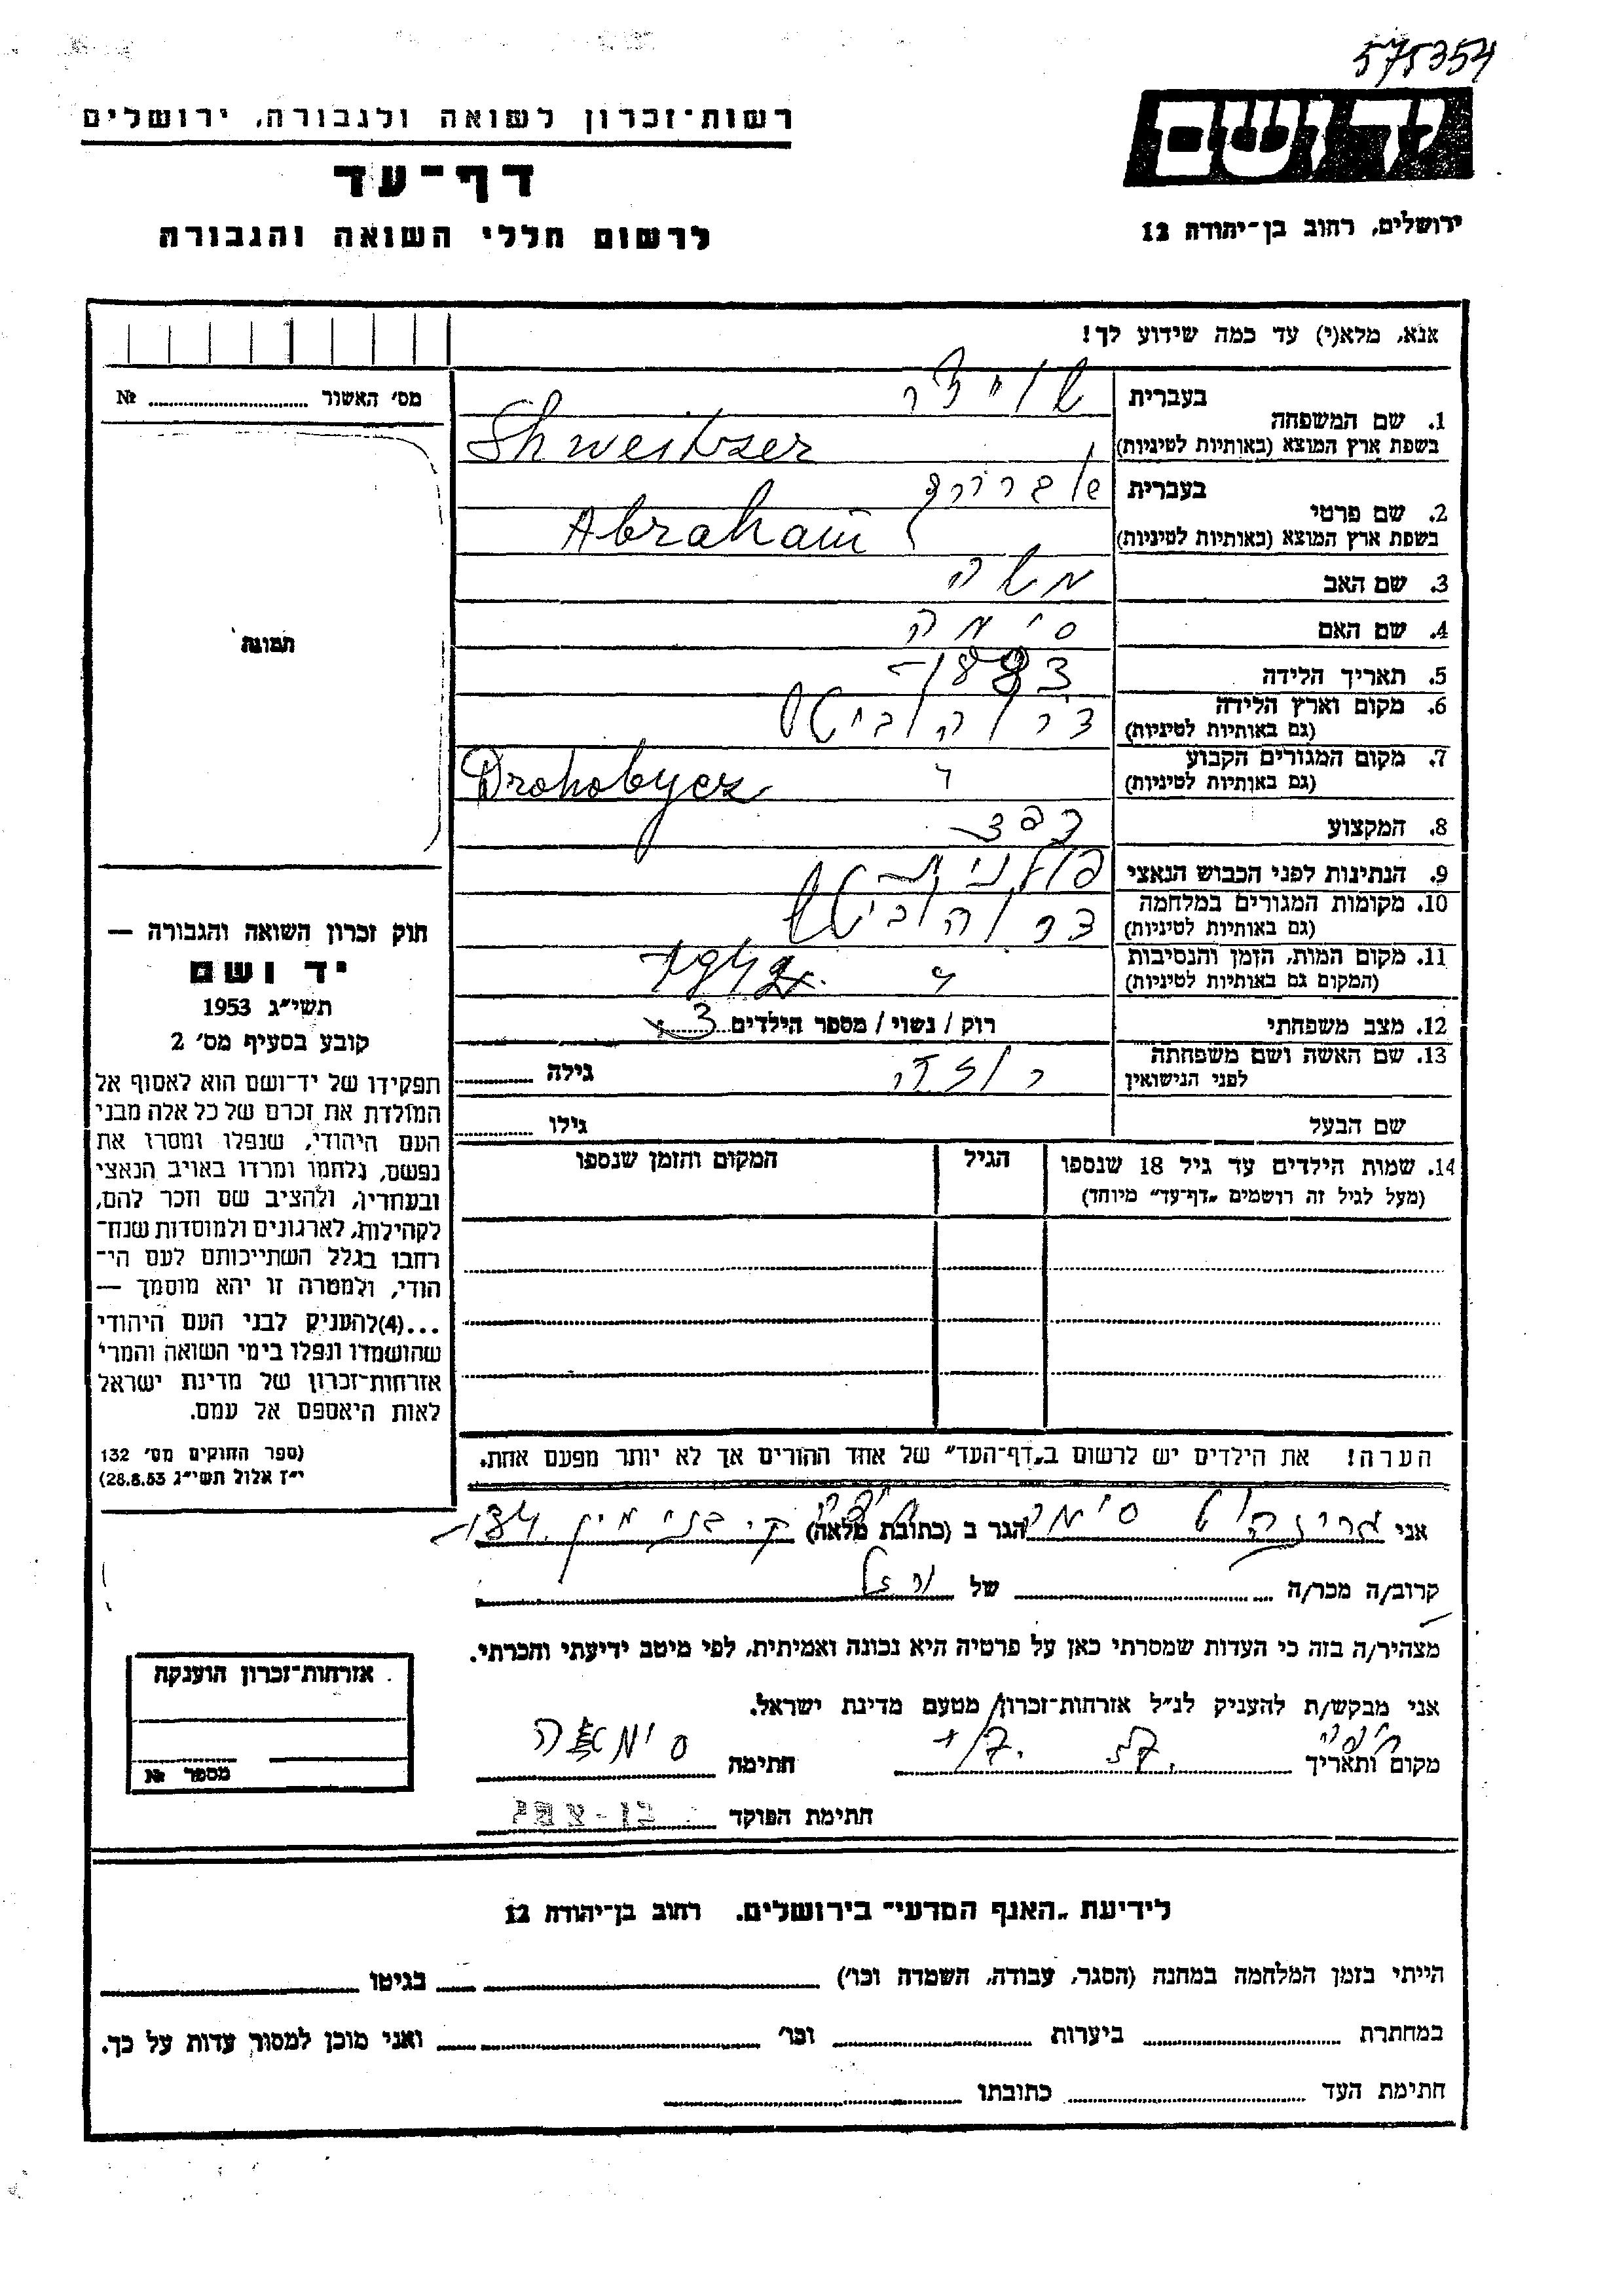 575354
יד ושם
רשות-זכרון לשואה ולגבורה, ירושלים
דף-עד
לרשום חללי השואה והגבורה
ירושלים, רחוב בן-יהודה 12
אנא, מלא(י) עד כמה שידוע לך!
מס' האשור ........ №
תמונה
1. שם המשפחה
בעברית
שוייצר
בשפת ארץ המוצא (באותיות לטיניות)
Shweitszer
2. שם פרטי
בעברית
אברהם
בשפת ארץ המוצא (באותיות לטיניות)
Abraham
3. שם האב
משה
4. שם האם
סימה
5. תאריך הלידה
1883
6. מקום וארץ הלידה
(גם באותיות לטיניות)
דרוהוביטש
7. מקום המגורים הקבוע
(גם באותיות לטיניות)
Drohobycz
8. המקצוע
9. הנתינות לפני הכבוש הנאצי
פולנית
10. מקומות המגורים במלחמה
(גם באותיות לטיניות)
דרוהוביטש
11. מקום המות, הזמן והנסיבות
(המקום גם באותיות לטיניות)
1942
12. מצב משפחתי
רוק / נשוי / מספר הילדים 3
13. שם האשה ושם משפחתה
לפני הנישואין
רוזה
גילה ........
שם הבעל
גילו ........
14. שמות הילדים עד גיל 18 שנספו
(מעל לגיל זה רושמים "דף-עד" מיוחד)
הגיל
המקום והזמן שנספו
חוק זכרון השואה והגבורה —
יד ושם
תשי"ג 1953
קובע בסעיף מס' 2
תפקידו של יד-ושם הוא לאסוף אל
המולדת את זכרם של כל אלה מבני
העם היהודי, שנפלו ומסרו את
נפשם, נלחמו ומרדו באויב הנאצי
ובעוזריו, ולהציב שם וזכר להם,
לקהילות, לארגונים ולמוסדות שנח-
רבו בגלל השתייכותם לעם הי-
הודי, ולמטרה זו יהא מוסמך —
...(4)להעניק לבני העם היהודי
שהושמדו ונפלו בימי השואה והמרי
אזרחות-זכרון של מדינת ישראל
לאות היאספם אל עמם.
(ספר החוקים מס' 132
י"ז אלול תשי"ג 28.8.53)
הערה! את הילדים יש לרשום ב"דף-העד" של אחד ההורים אך לא יותר מפעם אחת.
אני סימה הגר ב (כתובת מלאה) חיפה ק. בנימין 134
קרוב/ה מכר/ה ........ של
מצהיר/ה בזה כי העדות שמסרתי כאן על פרטיה היא נכונה ואמיתית, לפי מיטב ידיעתי והכרתי.
אני מבקש/ת להעניק לנ"ל אזרחות-זכרון מטעם מדינת ישראל.
מקום ותאריך חיפה 57. חתימה
חתימת הפוקד בן-צבי
אזרחות-זכרון הוענקה
מספר №
לידיעת "האגף המדעי" בירושלים. רחוב בן-יהודה 12
הייתי בזמן המלחמה במחנה (הסגר, עבודה, השמדה וכו') ........ בגיטו ........
במחתרת ........ ביערות ........ וכו' ........ ואני מוכן למסור עדות על כך.
חתימת העד ........ כתובתו ........